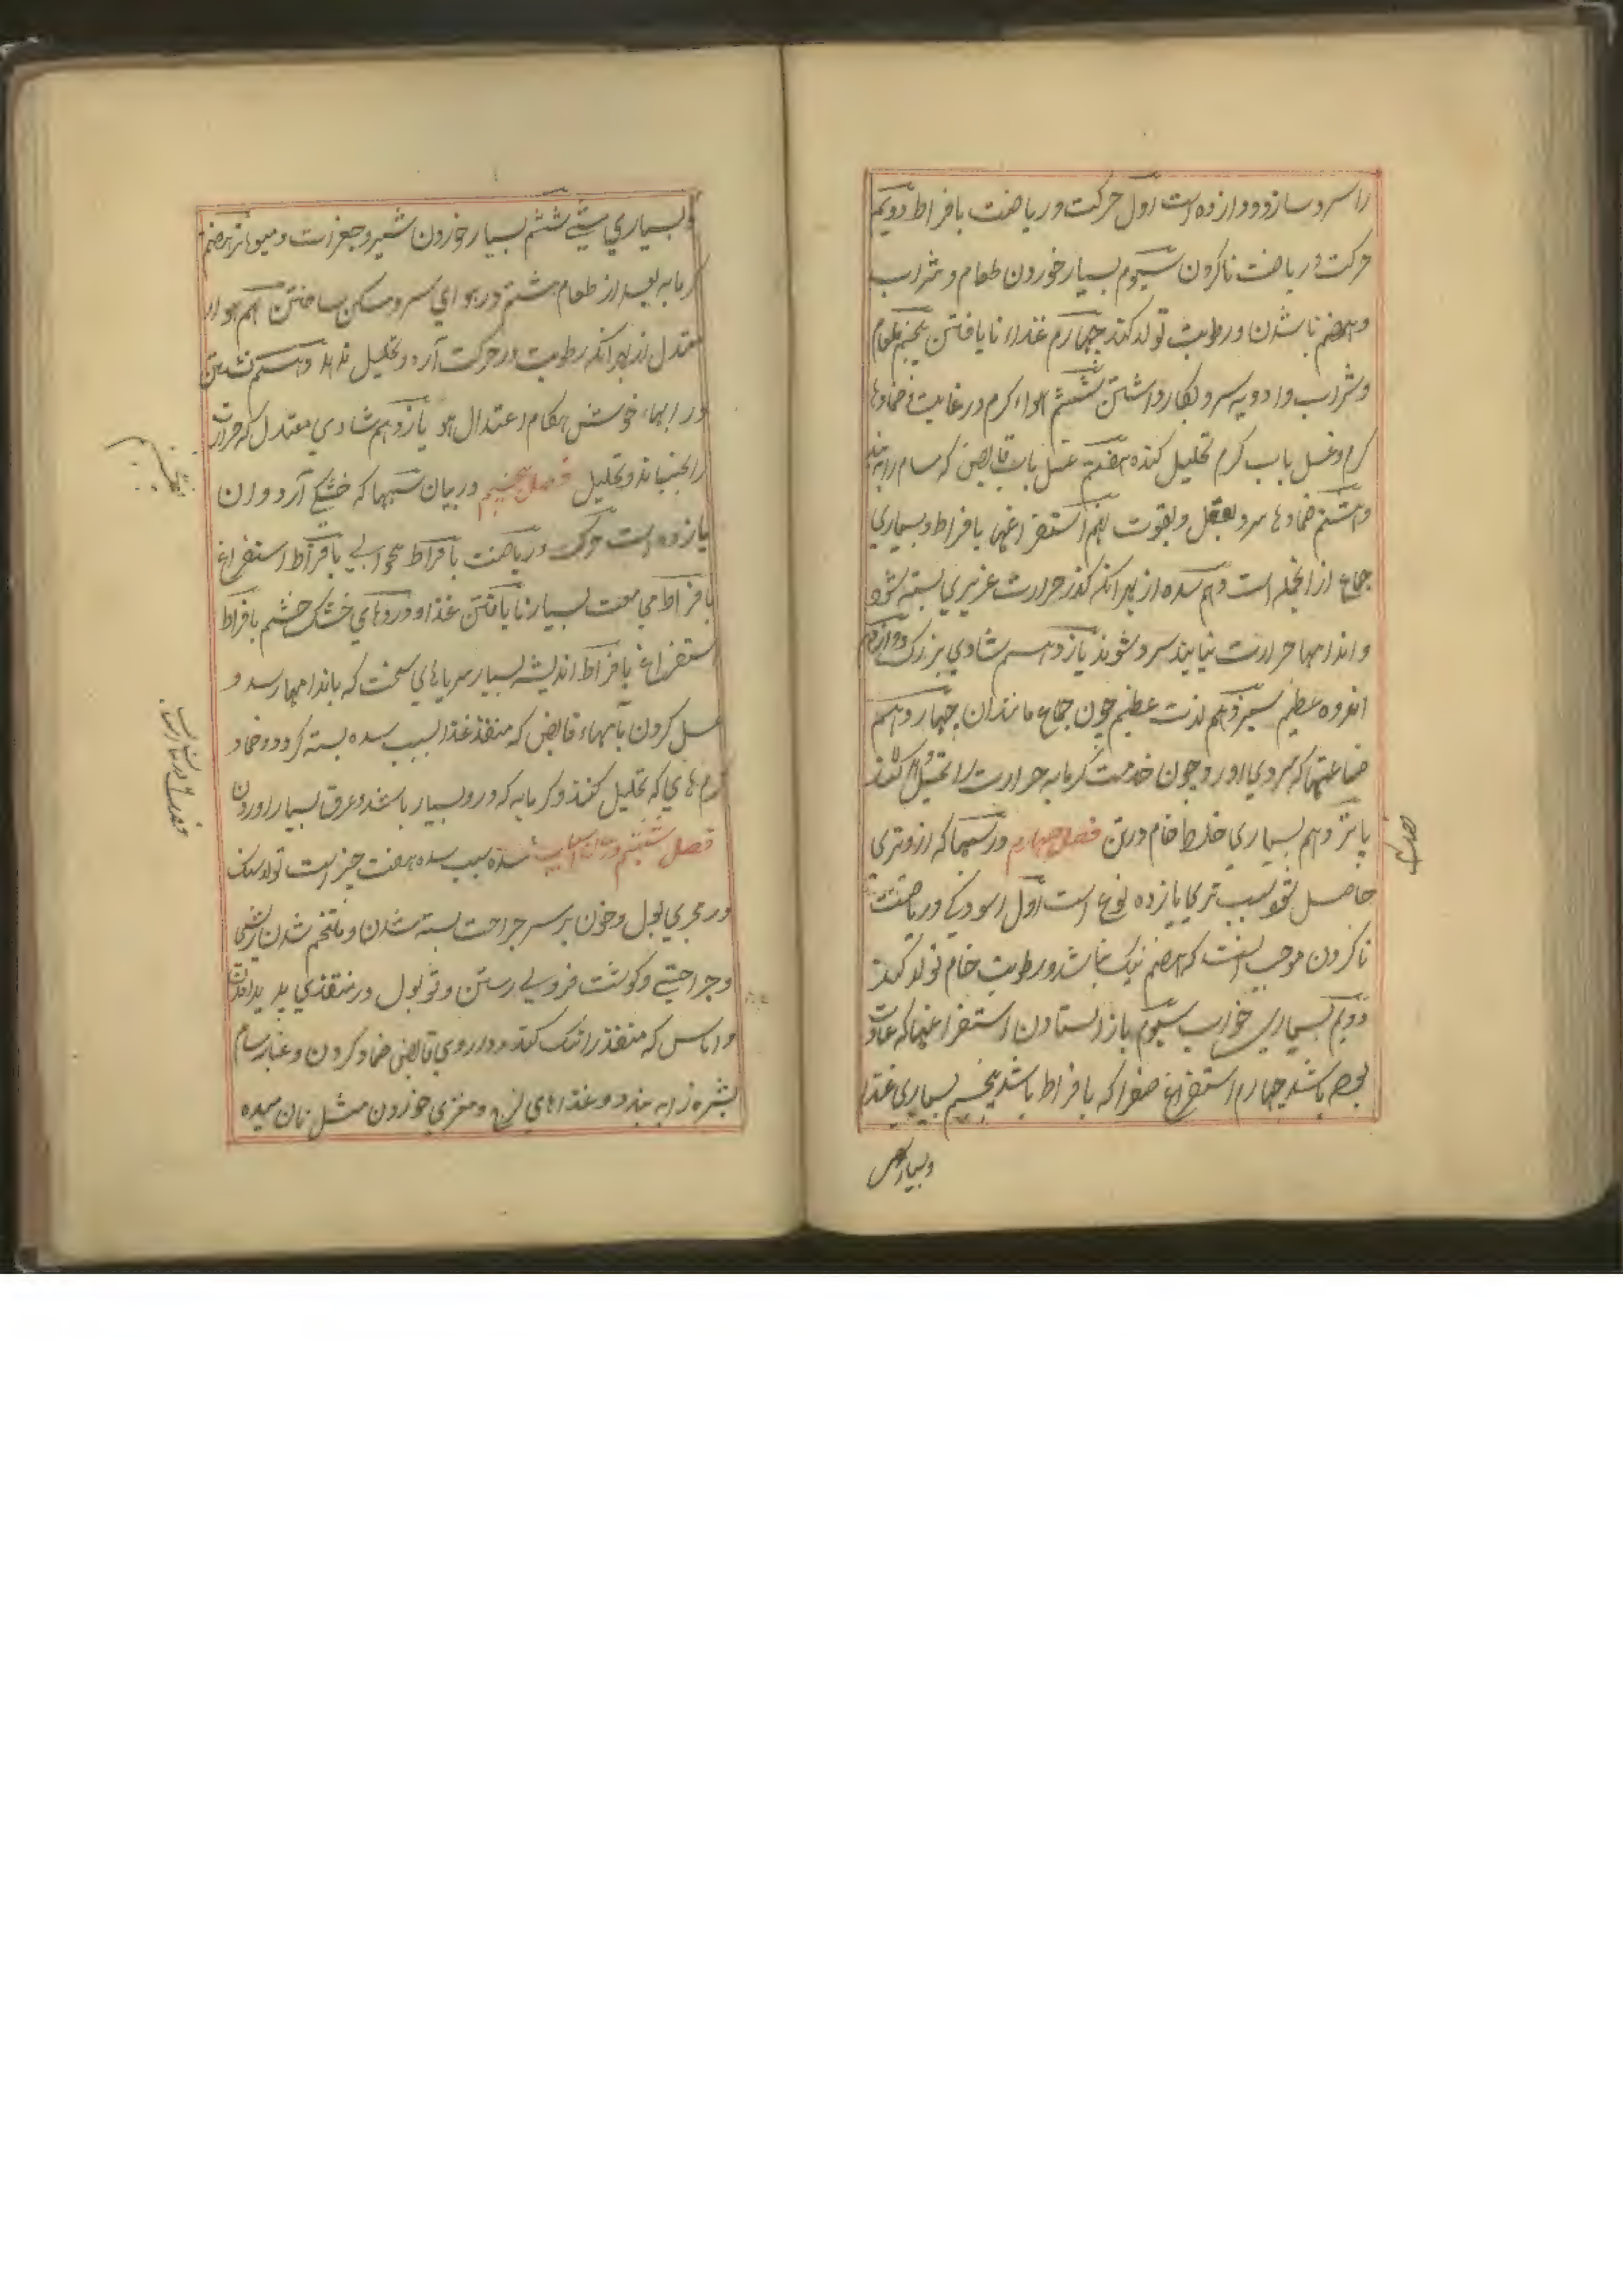 را سرد سازد دوازده است اول حرکت و ریاضت بافراط دویم
حرکت و ریاضت ناکردن سیوم بسیار خوردن طعام و شراب
و هضم ناشدن و رطوبت تولد کند چهارم غذاء نایافتن پنجم طعام
و شراب و ادویه سرد بکار داشتن ششم هواء کرم در غایت و ضمادها
کرم و غسل باب کرم تحلیل کننده هفتم غسل باب قابض که مسام را به بندد
هشتم ضمادها سرد بفعل و بقوت نهم استفراغها بافراط و بسیاری
جماع از انجمله است دهم سده از بهر انکه کذر حرارت غریزی بسته شود
و اندامها حرارت نیابند سرد شوند یازدهم شادی بزرک دوازدهم
اندوه عظیم سیزدهم لذت عظیم چون جماع مانند ان چهاردهم
صناعتها که سردی اورد چون خدمت کرمابه حرارت را تحلیل کند
پانزدهم بسیاری خلط خام در تن فصل چهارم در سببها که ازو تری
حاصل شود سبب تری یازده نوع است اول اسودکی و ریاضت
ناکردن موجب انست که هضم نیک نباشد و رطوبت خام تولد کند
دویم بسیاری خواب سیوم باز ایستادن استفراغها که عادت
بوده باشد چهارم استفراغ صفرا که بافراط باشد پنجم بسیاری غذا
و بسیاری
و بسیاری مستی ششم بسیار خوردن شیر و جغرات و میوهاء تر هفتم
کرمابه بعد از طعام هشتم در هوای سرد مسکن ساختن نهم هواء
معتدل از بهر انکه رطوبت در حرکت آرد و تحلیل ندهد دهم نشستن
در ابهاء خوش هنکام اعتدال هوا یازدهم شادی معتدل که حرارت
را بجنباند و تحلیل فصل پنجم در بیان سببها که خشکی آرد و ان
یازده است حرکت و ریاضت بافراط بیخوابی بافراط استفراغ
بافراط مجامعت بسیار نایافتن غذا و داروهای خشک خشم بافراط
استفراغ بافراط اندیشه بسیار سرماهای سخت که باندامها رسد و
غسل کردن بآبهاء قابض که منفذ غذا بسبب سده بسته کردد و ضماد
کرم های که تحلیل کنند و کرمابه که درو بسیار باشند و عرق بسیار اوردن
فصل ششم در اسباب سده سبب سده هفت چیز است تولد سنک
در مجری بول و خون بر سر جراحت بسته شدن و ملتحم شدن ریشی
و جراحتی و کوشت فزونی رستن و ثولول در منفذی پدید امدن
و اماس که منفذ را تنک کند و داروی قابض ضماد کردن و غبار مسام
بشره را به بندد و غذاهای لزج و مغزی خوردن مثل نان میده